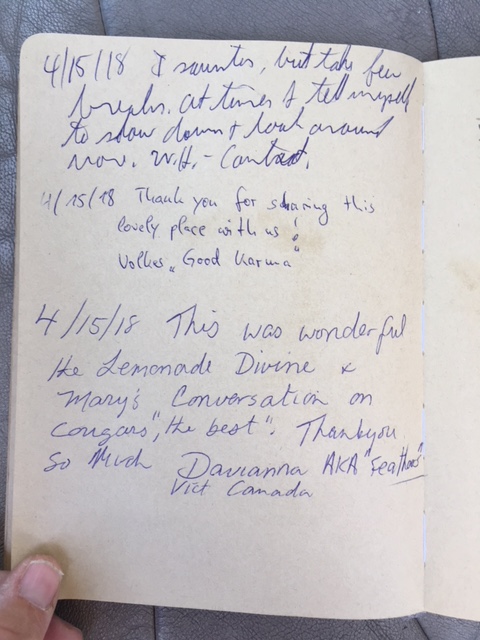 4/15/18 I saunter, but take few
breaks. At times I tell myself
to slow down + look around
now. W.H. -
4/15/18 Thank you for sharing this
lovely place with us!
Volker „Good Karma“
4/15/18 This was wonderful
the Lemonade Divine &
Mary's Conversation on
Cougars, "the best". Thankyou
So Much Davianna AKA "Feathers"
Vict Canada